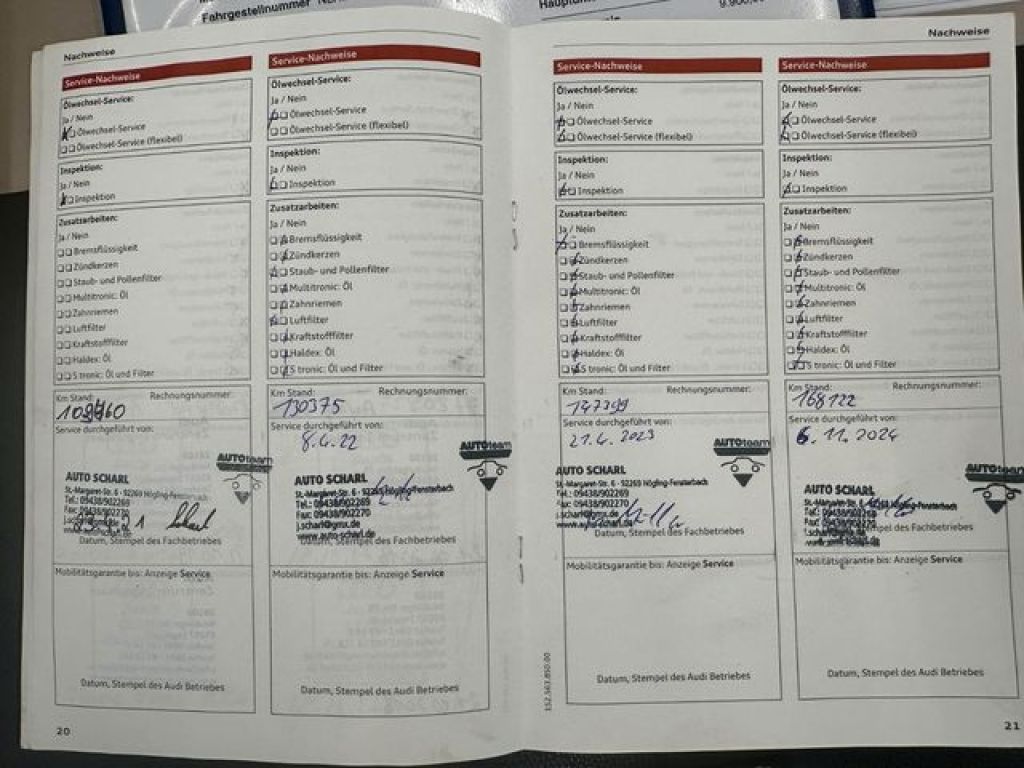 Fahrgestellnummer
Nachweise
Service-Nachweise
Ölwechsel-Service:
Ja / Nein
Ölwechsel-Service
Ölwechsel-Service (flexibel)
Inspektion:
Ja / Nein
Inspektion
Zusatzarbeiten:
Ja / Nein
Bremsflüssigkeit
Zündkerzen
Staub- und Pollenfilter
Multitronic: Öl
Zahnriemen
Luftfilter
Kraftstofffilter
Haldex: Öl
S tronic: Öl und Filter
Km Stand: Rechnungsnummer:
Service durchgeführt von:
AUTOteam
AUTO SCHARL
St.-Margaret-Str. 6 - 92269 Nögling-Fensterbach
Tel.: 09438/902269
Fax: 09438/902270
j.scharl@gmx.de
www.auto-scharl.de
Datum, Stempel des Fachbetriebes
Mobilitätsgarantie bis: Anzeige Service
Datum, Stempel des Audi Betriebes
20
Service-Nachweise
Ölwechsel-Service:
Ja / Nein
Ölwechsel-Service
Ölwechsel-Service (flexibel)
Inspektion:
Ja / Nein
Inspektion
Zusatzarbeiten:
Ja / Nein
Bremsflüssigkeit
Zündkerzen
Staub- und Pollenfilter
Multitronic: Öl
Zahnriemen
Luftfilter
Kraftstofffilter
Haldex: Öl
S tronic: Öl und Filter
Km Stand: Rechnungsnummer:
130375
Service durchgeführt von:
8.4.22
AUTOteam
AUTO SCHARL
St.-Margaret-Str. 6 - 92269 Nögling-Fensterbach
Tel.: 09438/902269
Fax: 09438/902270
j.scharl@gmx.de
www.auto-scharl.de
Datum, Stempel des Fachbetriebes
Mobilitätsgarantie bis: Anzeige Service
Datum, Stempel des Audi Betriebes
Nachweise
Service-Nachweise
Ölwechsel-Service:
Ja / Nein
Ölwechsel-Service
Ölwechsel-Service (flexibel)
Inspektion:
Ja / Nein
Inspektion
Zusatzarbeiten:
Ja / Nein
Bremsflüssigkeit
Zündkerzen
Staub- und Pollenfilter
Multitronic: Öl
Zahnriemen
Luftfilter
Kraftstofffilter
Haldex: Öl
S tronic: Öl und Filter
Km Stand: Rechnungsnummer:
Service durchgeführt von:
21.4.2023
AUTOteam
AUTO SCHARL
St.-Margaret-Str. 6 - 92269 Nögling-Fensterbach
Tel.: 09438/902269
Fax: 09438/902270
j.scharl@gmx.de
www.auto-scharl.de
Datum, Stempel des Fachbetriebes
Mobilitätsgarantie bis: Anzeige Service
Datum, Stempel des Audi Betriebes
152.563.850.00
Service-Nachweise
Ölwechsel-Service:
Ja / Nein
Ölwechsel-Service
Ölwechsel-Service (flexibel)
Inspektion:
Ja / Nein
Inspektion
Zusatzarbeiten:
Ja / Nein
Bremsflüssigkeit
Zündkerzen
Staub- und Pollenfilter
Multitronic: Öl
Zahnriemen
Luftfilter
Kraftstofffilter
Haldex: Öl
S tronic: Öl und Filter
Km Stand: Rechnungsnummer:
168122
Service durchgeführt von:
6.11.2024
AUTOteam
AUTO SCHARL
St.-Margaret-Str. 6 - 92269 Nögling-Fensterbach
Tel.: 09438/902269
Fax: 09438/902270
Datum, Stempel des Fachbetriebes
Mobilitätsgarantie bis: Anzeige Service
Datum, Stempel des Audi Betriebes
21